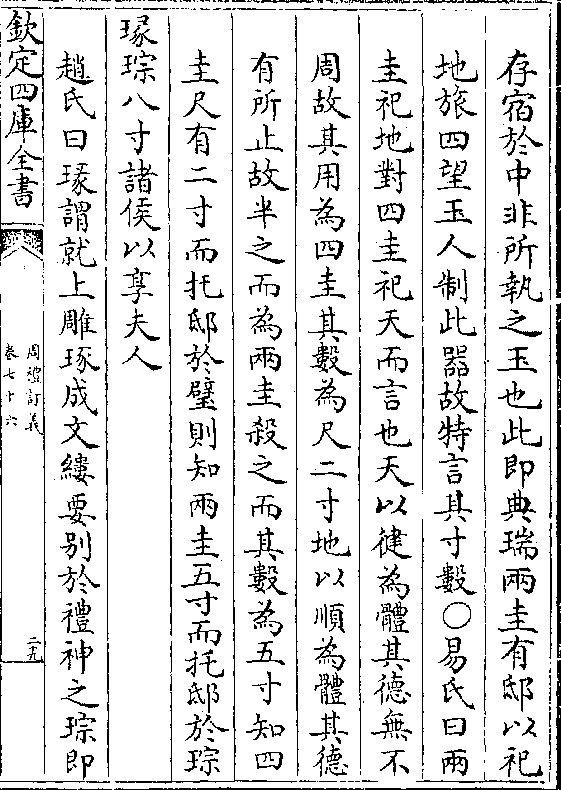 存宿於中非所執之玉也此即典瑞兩圭有邸以祀
地旅四望玉人制此器故特言其寸數○易氏曰兩
圭祀地對四圭祀天而言也天以健為體其德無不
周故其用為四圭其數為尺二寸地以順為體其德
有所止故半之而為兩圭殺之而其數為五寸知四
圭尺有二寸而托邸於璧則知兩圭五寸而托邸於琮
瑑琮八寸諸侯以享夫人
趙氏曰瑑謂就上雕琢成文縷要别於禮神之琮即
欽定四庫全書
周禮訂義
卷七十六
二九